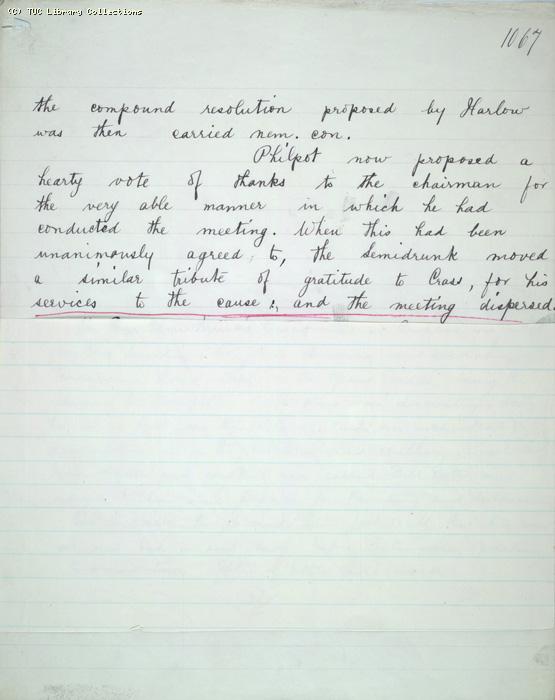 (C) TUC Library Collections
1067
the compound resolution proposed by Harlow
was then carried nem. con.
Philpot now proposed a
hearty vote of thanks to the chairman for
the very able manner in which he had
conducted the meeting. When this had been
unanimously agreed to, the Semidrunk moved
a similar tribute of gratitude to Crass, for his
services to the cause, and the meeting dispersed.